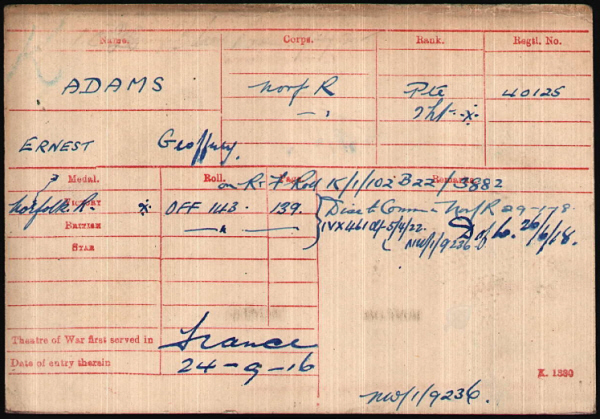 Name. Corps. Rank. Regtl. No.
ADAMS Norf R Pte 40125
—"— 2/Lt
ERNEST Geoffrey.
Medal. Roll. Page. Remarks
on R. F Roll K/1/102 B22/3882
Norfolk R.
VICTORY OFF 143. 139. Norf R 29-1-78
BRITISH —"— IVX461 d/5/4/22.
NW/1/9236 D of W. 26/6/18.
STAR
Theatre of War first served in France
Date of entry therein 24-9-16
K. 1380
NW/1/9236.